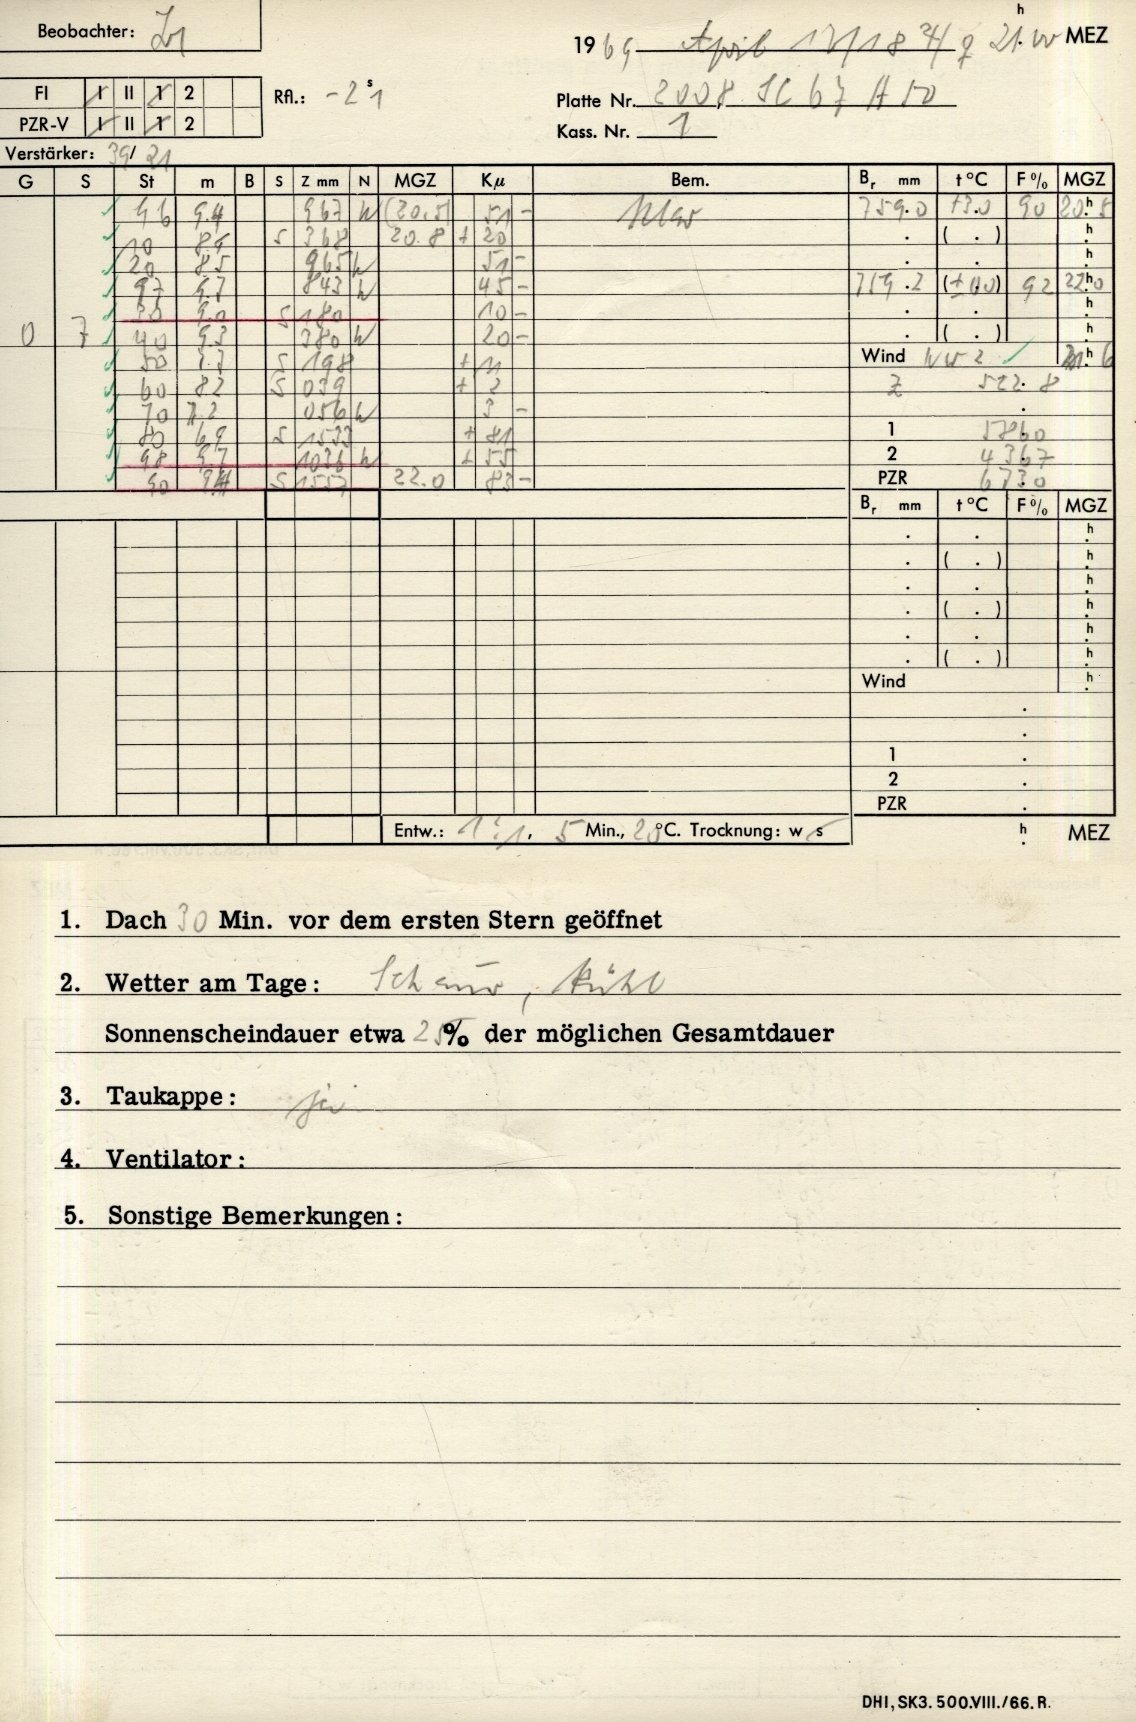 Beobachter:
1969 April 17/18 21.00 h MEZ
FI I II 1 2 Rfl.: -2 s 1
Platte Nr. 2008, SC 67 A 50
PZR-V I II 1 2
Kass. Nr. 1
Verstärker: 39/21
G S St m B S Z mm N MGZ Kµ Bem. Br mm t °C F % MGZ
96 9.4 967 N (20.5) 51 - klar 759.0 +3.0 90 20.h5
10 8.5 S 368 20.8 + 20 . ( . ) h
20 8.5 965 N 51 - . . h
97 9.7 843 N 45 - 759.2 (±0.0) 92 22.h0
30 9.0 S 180 10 - . . h
0 7 40 9.3 380 N 20 - . ( . ) h
50 S 198 + 11 Wind NW 2 h
60 8.2 S 039 + 2 Z 522.8
70 056 N 3 - .
80 6.9 S 1533 + 81 1 5860
98 9.7 1036 N + 55 2 4367
90 S 1557 22.0 83 - PZR 6730
Br mm t °C F % MGZ
. . h
. ( . ) h
. . h
. ( . ) h
. . h
. ( . ) h
Wind h
.
.
1 .
2 .
PZR .
Entw.: 1:1, 5 Min., 20 °C. Trocknung: w s h MEZ
1. Dach 30 Min. vor dem ersten Stern geöffnet
2. Wetter am Tage: Schauer, kühl
Sonnenscheindauer etwa 25 % der möglichen Gesamtdauer
3. Taukappe: ja
4. Ventilator:
5. Sonstige Bemerkungen:
DHI, SK3. 500.VIII./66. R.